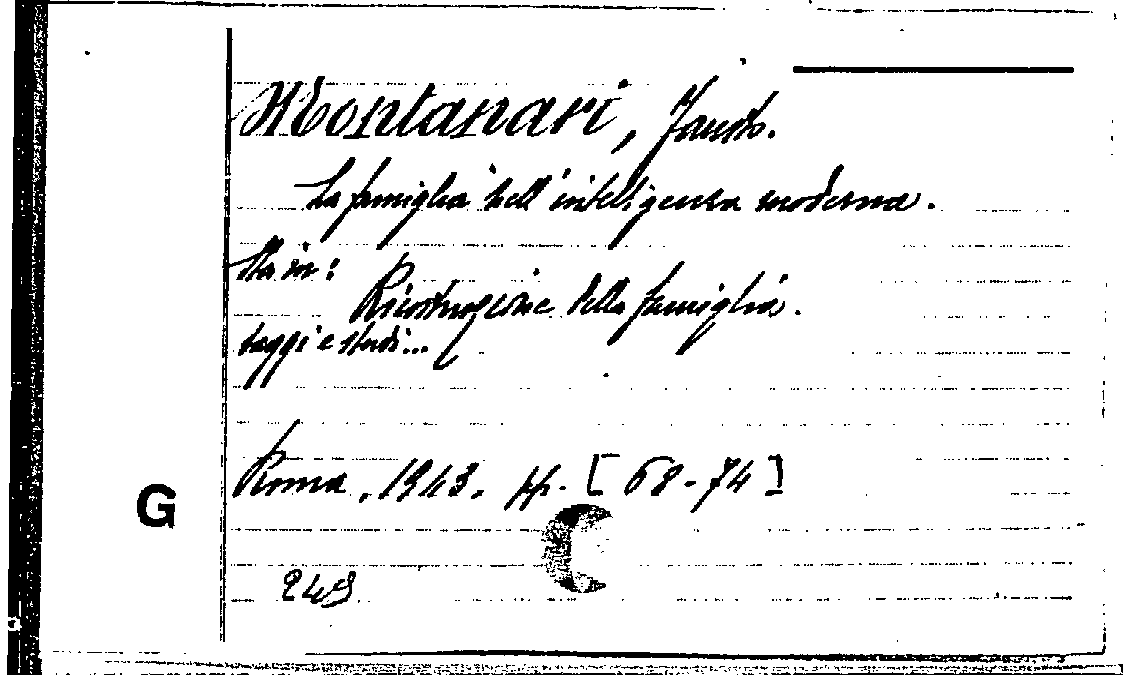 Montanari, Fausto.
La famiglia nell'intelligenza moderna.
Sta in:
Ricostruzione della famiglia.
saggi e studi...
Roma, 1943. pp. [68-74]
G
249